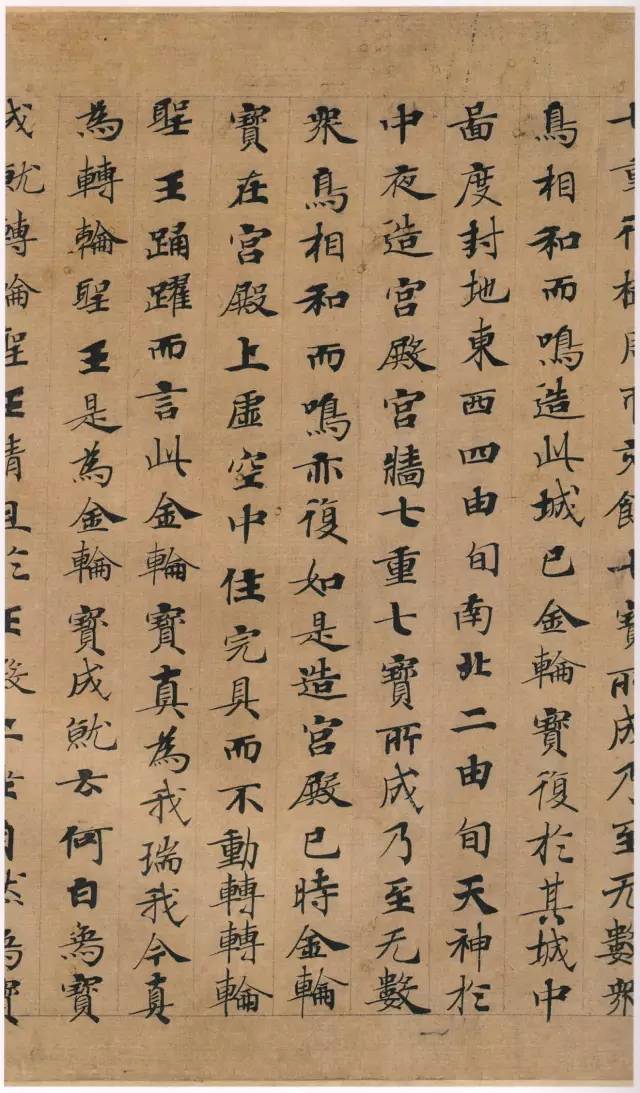 七重行樹周帀交飾七寶所成乃至无數衆
鳥相和而鳴造此城已金輪寶復於其城中
啚度封地東西四由旬南北二由旬天神於
中夜造宮殿宮牆七重七寶所成乃至无數
衆鳥相和而鳴亦復如是造宮殿已時金輪
寶在宮殿上虛空中住完具而不動轉轉輪
聖王踊躍而言此金輪寶真為我瑞我今真
為轉輪聖王是為金輪寶成就云何白象寶
成就轉輪聖王清旦於正殿上坐自然象寶